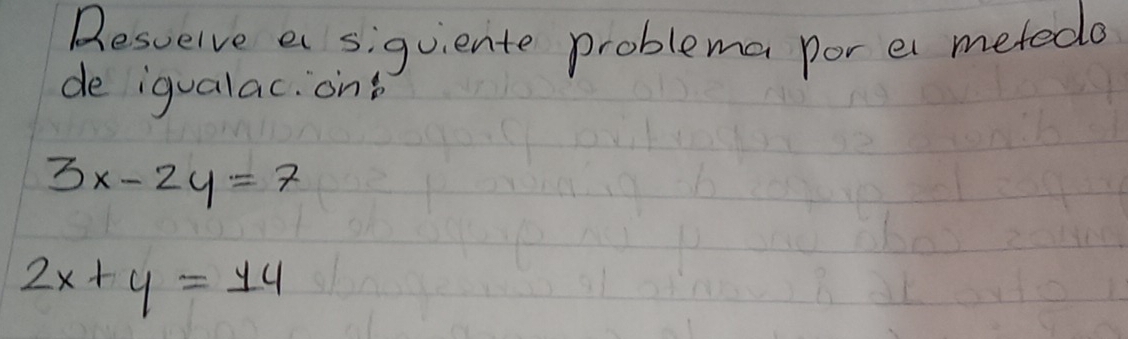 Resuelve el siguiente problema por el metodo
de igualación:
3x - 2y = 7
2x + y = 14